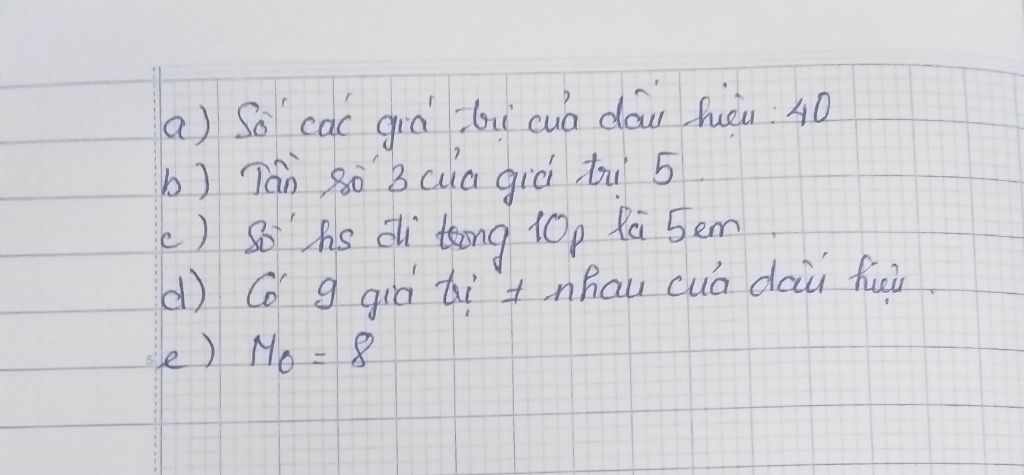 a) Số các giá trị của dấu hiệu : 40
b) Tần số 3 của giá trị 5
c) Số hs đi trong 10p là 5 em
d) Có 9 giá trị ≠ nhau của dấu hiệu.
e) Mo = 8